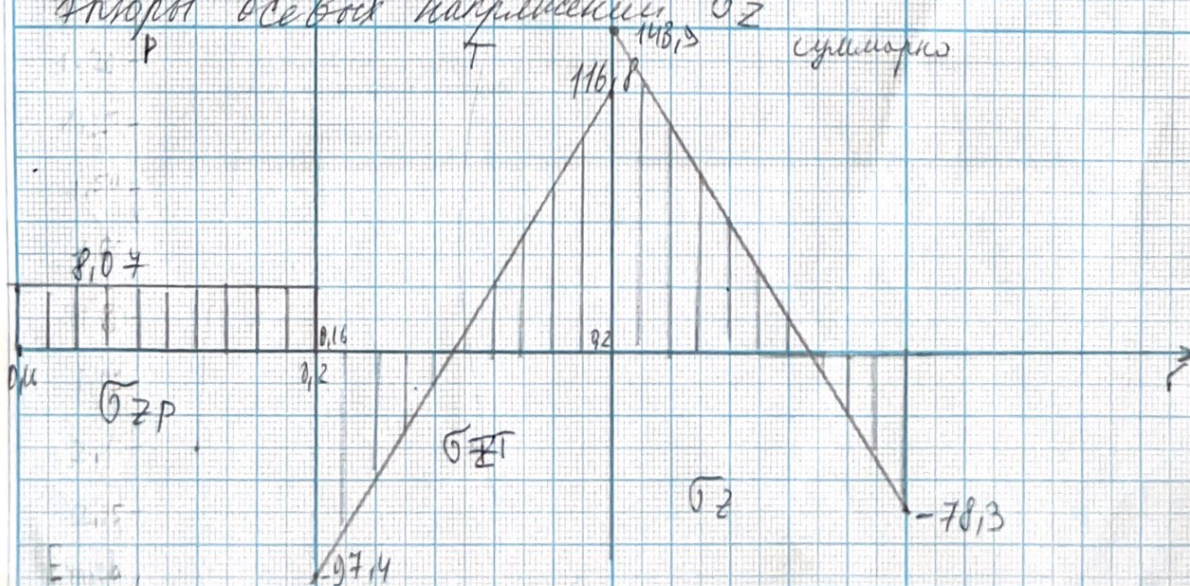 Эпюры осевых напряжений σz
P T суммарно
148,9
116,8
8,07
0,16 0,2
0,16 0,2 r
σzp
σzT
σz
-78,3
-97,4